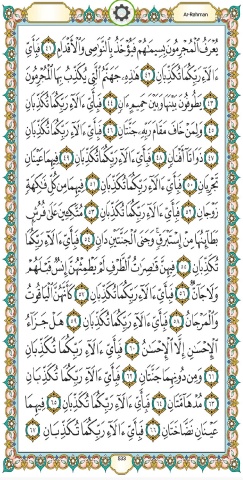 Ar-Rahman
يُعْرَفُ ٱلْمُجْرِمُونَ بِسِيمَٰهُمْ فَيُؤْخَذُ بِٱلنَّوَٰصِى وَٱلْأَقْدَامِ ٤١ فَبِأَىِّ
ءَالَآءِ رَبِّكُمَا تُكَذِّبَانِ ٤٢ هَٰذِهِۦ جَهَنَّمُ ٱلَّتِى يُكَذِّبُ بِهَا ٱلْمُجْرِمُونَ
٤٣ يَطُوفُونَ بَيْنَهَا وَبَيْنَ حَمِيمٍ ءَانٍ ٤٤ فَبِأَىِّ ءَالَآءِ رَبِّكُمَا تُكَذِّبَانِ
٤٥ وَلِمَنْ خَافَ مَقَامَ رَبِّهِۦ جَنَّتَانِ ٤٦ فَبِأَىِّ ءَالَآءِ رَبِّكُمَا تُكَذِّبَانِ
٤٧ ذَوَاتَآ أَفْنَانٍ ٤٨ فَبِأَىِّ ءَالَآءِ رَبِّكُمَا تُكَذِّبَانِ ٤٩ فِيهِمَا عَيْنَانِ
تَجْرِيَانِ ٥٠ فَبِأَىِّ ءَالَآءِ رَبِّكُمَا تُكَذِّبَانِ ٥١ فِيهِمَا مِن كُلِّ فَٰكِهَةٍ
زَوْجَانِ ٥٢ فَبِأَىِّ ءَالَآءِ رَبِّكُمَا تُكَذِّبَانِ ٥٣ مُتَّكِـِٔينَ عَلَىٰ فُرُشٍۭ
بَطَآئِنُهَا مِنْ إِسْتَبْرَقٍ ۚ وَجَنَى ٱلْجَنَّتَيْنِ دَانٍ ٥٤ فَبِأَىِّ ءَالَآءِ رَبِّكُمَا
تُكَذِّبَانِ ٥٥ فِيهِنَّ قَٰصِرَٰتُ ٱلطَّرْفِ لَمْ يَطْمِثْهُنَّ إِنسٌ قَبْلَهُمْ
وَلَا جَآنٌّ ٥٦ فَبِأَىِّ ءَالَآءِ رَبِّكُمَا تُكَذِّبَانِ ٥٧ كَأَنَّهُنَّ ٱلْيَاقُوتُ
وَٱلْمَرْجَانُ ٥٨ فَبِأَىِّ ءَالَآءِ رَبِّكُمَا تُكَذِّبَانِ ٥٩ هَلْ جَزَآءُ
ٱلْإِحْسَٰنِ إِلَّا ٱلْإِحْسَٰنُ ٦٠ فَبِأَىِّ ءَالَآءِ رَبِّكُمَا تُكَذِّبَانِ
٦١ وَمِن دُونِهِمَا جَنَّتَانِ ٦٢ فَبِأَىِّ ءَالَآءِ رَبِّكُمَا تُكَذِّبَانِ
٦٣ مُدْهَآمَّتَانِ ٦٤ فَبِأَىِّ ءَالَآءِ رَبِّكُمَا تُكَذِّبَانِ ٦٥ فِيهِمَا
عَيْنَانِ نَضَّاخَتَانِ ٦٦ فَبِأَىِّ ءَالَآءِ رَبِّكُمَا تُكَذِّبَانِ ٦٧
533